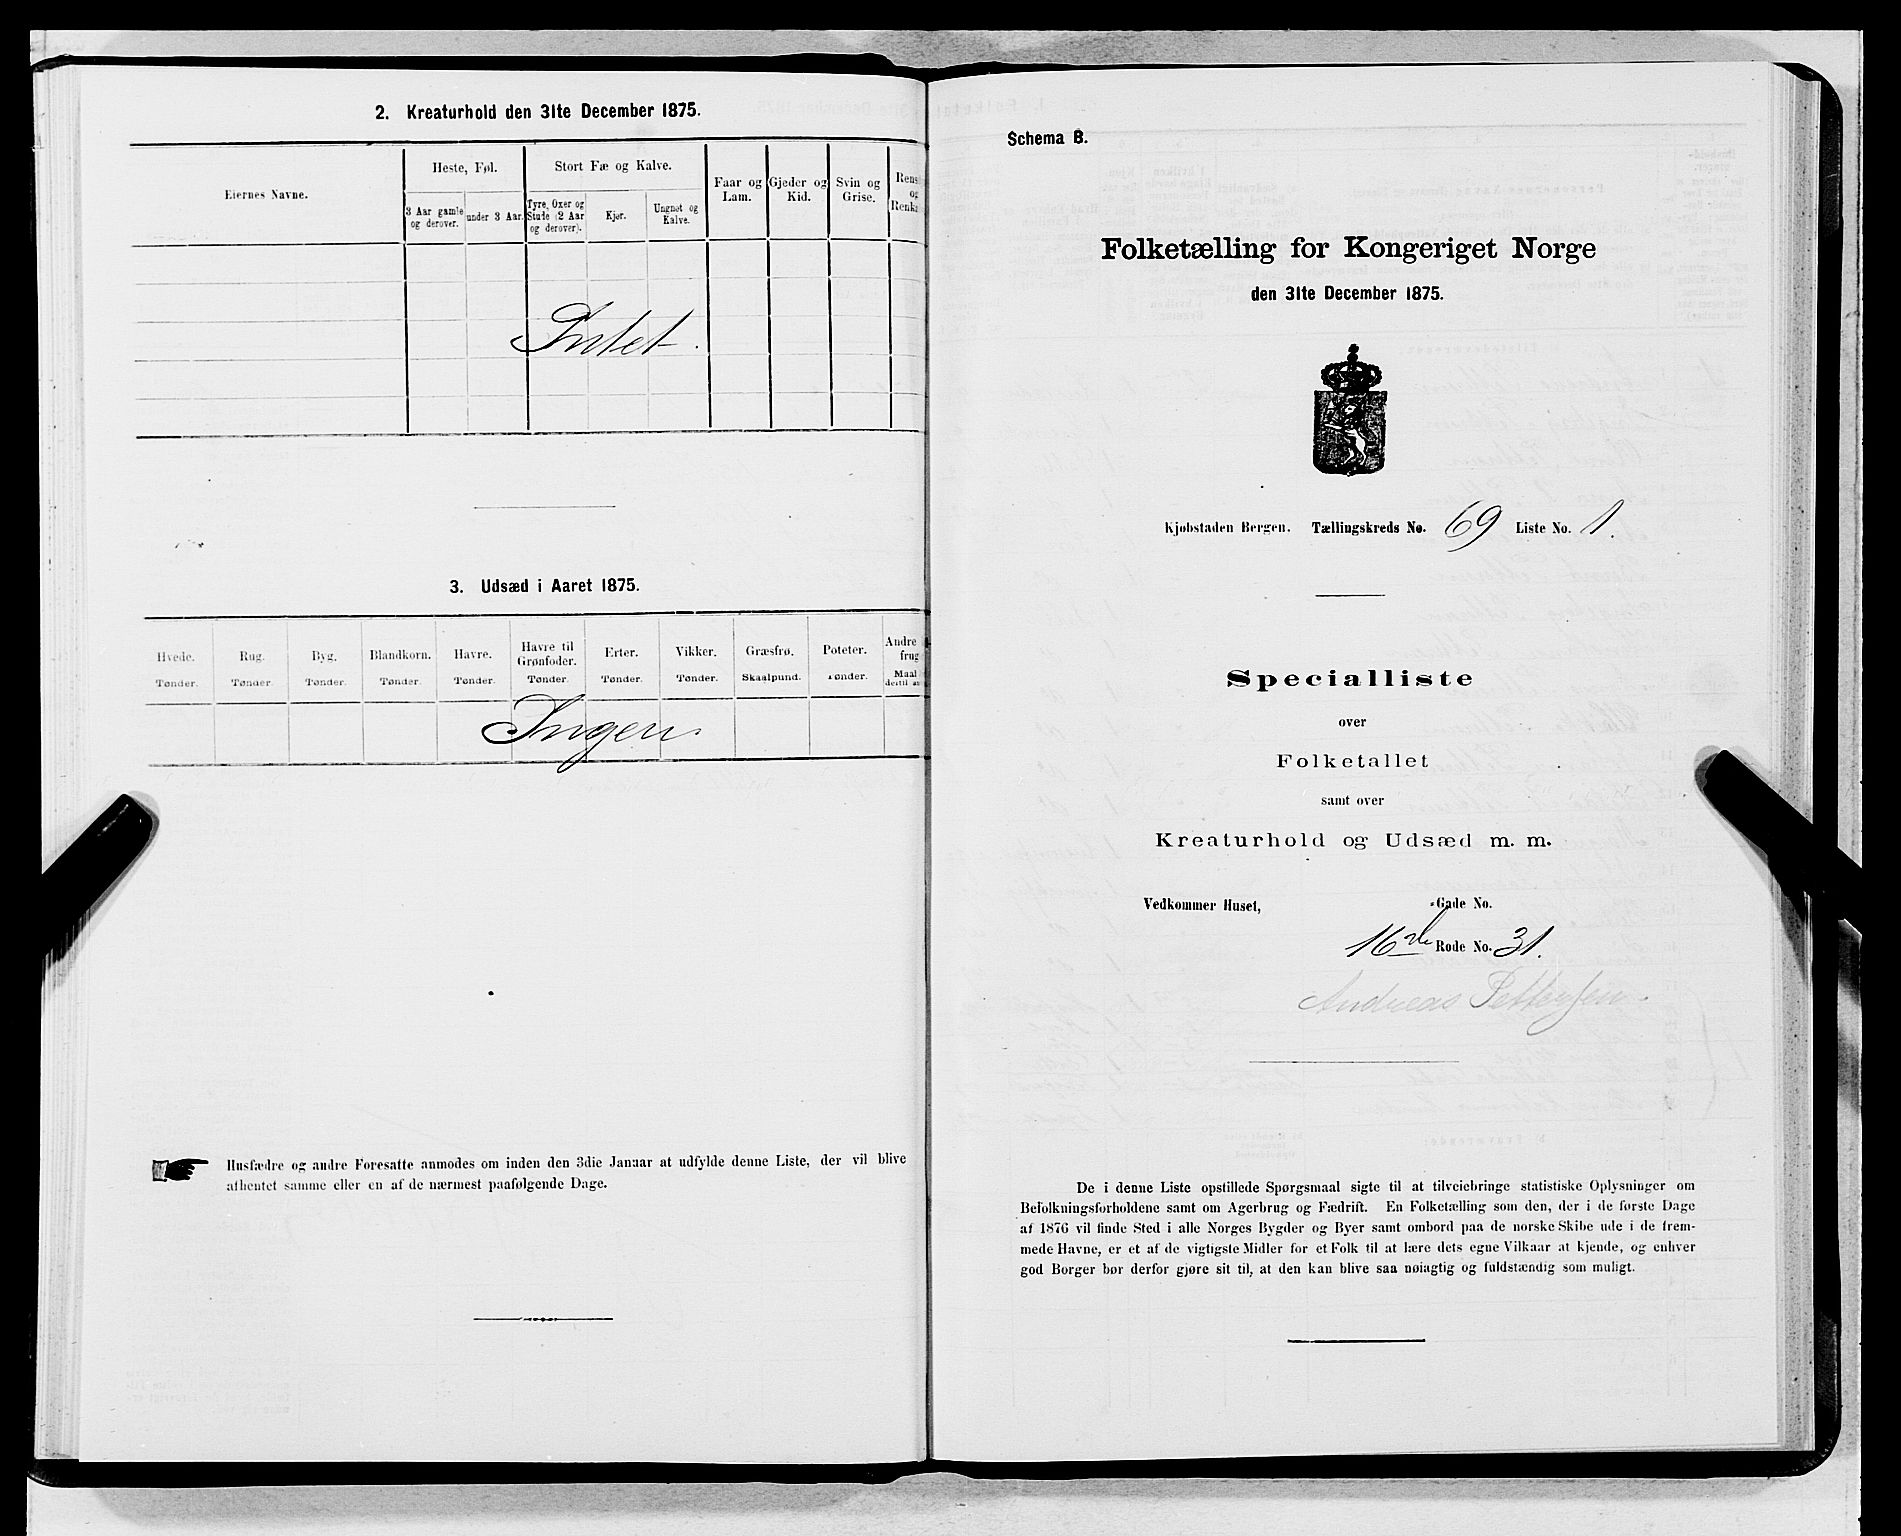 2. Kreaturhold den 31te December 1875.
Eiernes Navne.
Heste, Føl.
3 Aar gamle og derover.
under 3 Aar.
Stort Fæ og Kalve.
Tyre, Oxer og Stude (2 Aar og derover).
Kjør.
Ungnøt og Kalve.
Faar og Lam.
Gjeder og Kid.
Svin og Grise.
Rens og Renka
Intet.
3. Udsæd i Aaret 1875.
Hvede. Tønder.
Rug. Tønder.
Byg. Tønder.
Blandkorn. Tønder.
Havre. Tønder.
Havre til Grønfoder. Tønder.
Erter. Tønder.
Vikker. Tønder.
Græsfrø. Skaalpund.
Poteter. Tønder.
Andre frug Maal dertil an
Ingen
Husfædre og andre Foresatte anmodes om inden den 3die Januar at udfylde denne Liste, der vil blive
afhentet samme eller en af de nærmest paafølgende Dage.
Schema B.
Folketælling for Kongeriget Norge
den 31te December 1875.
Kjøbstaden Bergen. Tællingskreds No. 69 Liste No. 1.
Specialliste
over
Folketallet
samt over
Kreaturhold og Udsæd m. m.
Vedkommer Huset, -Gade No.
16de Rode No. 31.
Andreas Pettersen.
De i denne Liste opstillede Spørgsmaal sigte til at tilveiebringe statistiske Oplysninger om
Befolkningsforholdene samt om Agerbrug og Fædrift. En Folketælling som den, der i de første Dage
af 1876 vil finde Sted i alle Norges Bygder og Byer samt ombord paa de norske Skibe ude i de frem-
mede Havne, er et af de vigtigste Midler for et Folk til at lære dets egne Vilkaar at kjende, og enhver
god Borger bør derfor gjøre sit til, at den kan blive saa nøiagtig og fuldstændig som muligt.